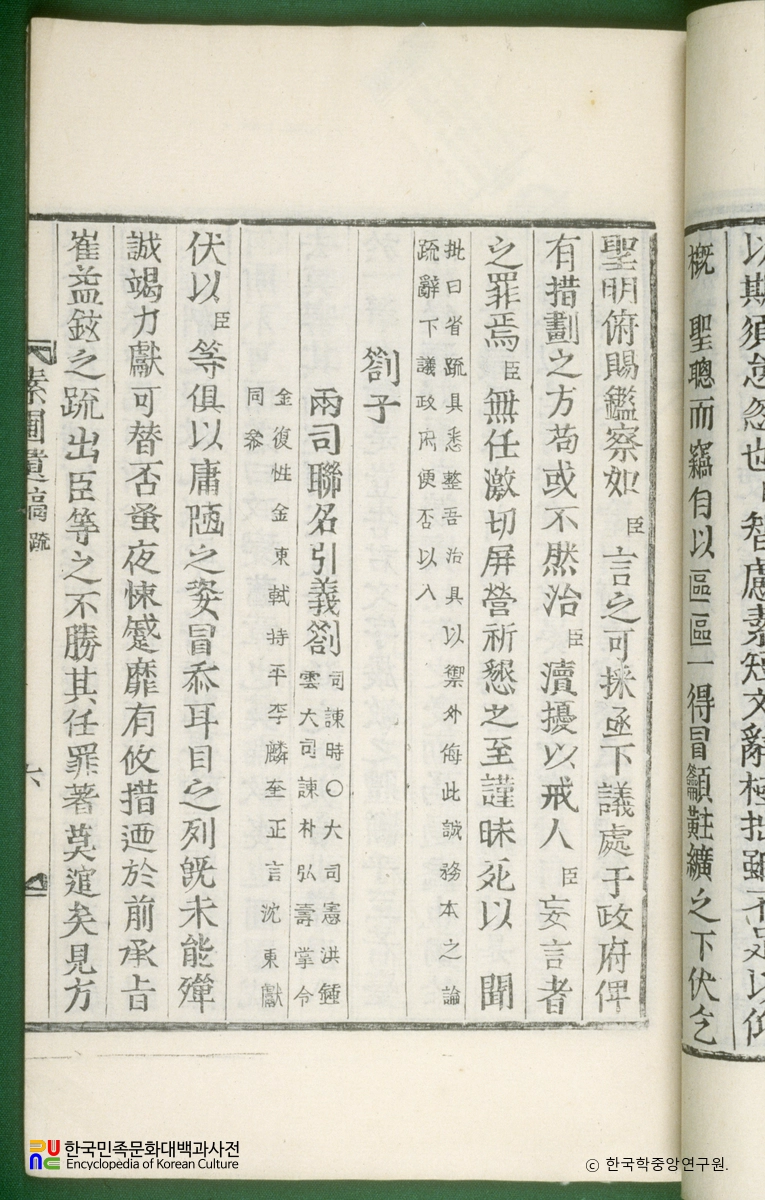 以期須忽忽也
智慮素短文辭極拙雖不足以仰
概 聖聰而竊自以區區一得冒籲黈纊之下伏乞
聖明俯賜鑑察如臣言之可採亟下議處于政府俾
有措劃之方苟或不然治臣瀆擾以戒人臣妄言者
之罪焉臣無任激切屛營祈懇之至謹昧死以 聞
批曰省疏具悉整吾治具以禦外侮此誠務本之論
疏辭下議政府便否以入
劄子
兩司聯名引義劄
司諫時○大司憲洪鍾
雲大司諫朴弘壽掌令
金復性金東軾持平李麟奎正言沈東獻
同參
伏以臣等俱以庸陋之姿冒忝耳目之列旣未能殫
誠竭力獻可替否蚤夜悚蹙靡有攸措迺於前承旨
崔益鉉之疏出臣等之不勝其任罪著莫逭矣見方
素圃遺稿 疏
六
한국민족문화대백과사전
Encyclopedia of Korean Culture
© 한국학중앙연구원.